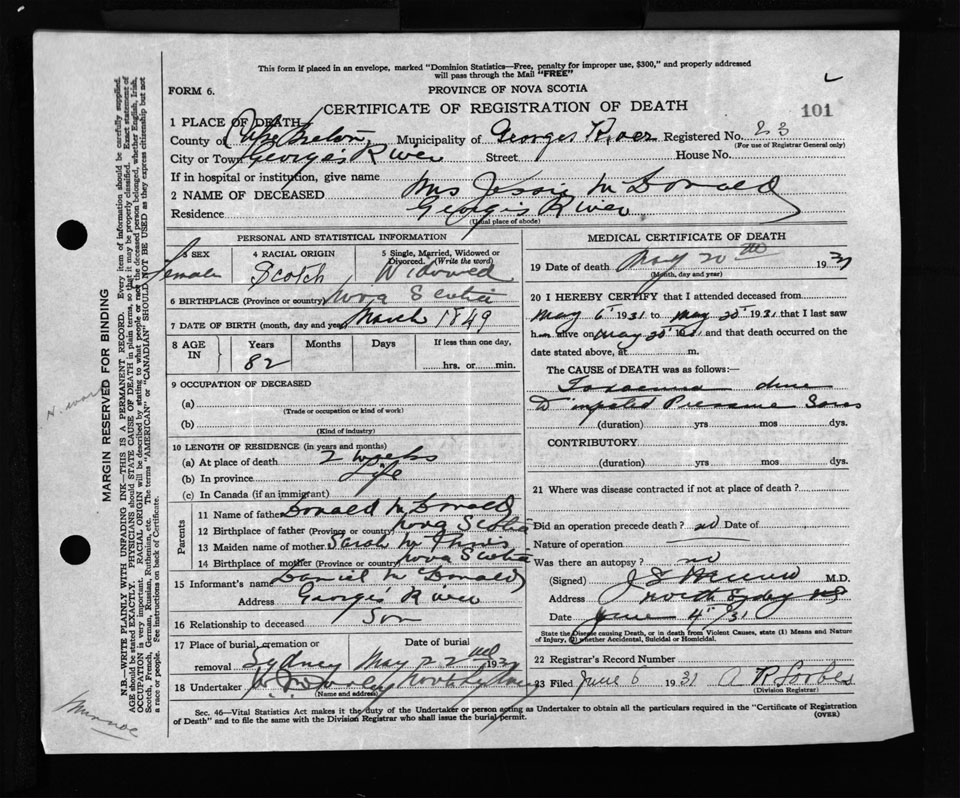 This form if placed in an envelope, marked "Dominion Statistics—Free, penalty for improper use, $300," and properly addressed
will pass through the Mail "FREE"
FORM 6.
PROVINCE OF NOVA SCOTIA
CERTIFICATE OF REGISTRATION OF DEATH
101
1 PLACE OF DEATH
County of Cape Breton Municipality of Georges River Registered No. 23
(For use of Registrar General only)
City or Town Georges River Street House No.
If in hospital or institution, give name
2 NAME OF DECEASED Mrs Jessie McDonald
Residence Georges River
(Usual place of abode)
PERSONAL AND STATISTICAL INFORMATION
3 SEX Female
4 RACIAL ORIGIN Scotch
5 Single, Married, Widowed or Divorced. (Write the word) Widowed
6 BIRTHPLACE (Province or country) Nova Scotia
7 DATE OF BIRTH (month, day and year) March 1849
8 AGE IN Years 82 Months Days If less than one day, hrs. or min.
9 OCCUPATION OF DECEASED
(a)
(Trade or occupation or kind of work)
(b)
(Kind of industry)
10 LENGTH OF RESIDENCE (in years and months)
(a) At place of death 2 weeks
(b) In province Life
(c) In Canada (if an immigrant)
Parents
11 Name of father Donald McDonald
12 Birthplace of father (Province or country) Nova Scotia
13 Maiden name of mother Sarah
14 Birthplace of mother (Province or country) Nova Scotia
15 Informant's name Daniel McDonald
Address Georges River
16 Relationship to deceased Son
17 Place of burial, cremation or removal Sydney Date of burial May 22nd 1931
18 Undertaker North Sydney
(Name and address)
MEDICAL CERTIFICATE OF DEATH
19 Date of death May 20th 1931
(Month, day and year)
20 I HEREBY CERTIFY that I attended deceased from
May 6 1931 to May 20 1931 that I last saw
h alive on May 20 1931 and that death occurred on
date stated above, at m.
The CAUSE of DEATH was as follows:—
Toxaemia due
to infected Pressure Sores
(duration) yrs mos dys.
CONTRIBUTORY
(duration) yrs mos dys.
21 Where was disease contracted if not at place of death?
Did an operation precede death? no Date of
Nature of operation
Was there an autopsy? no
(Signed) J S Munro M.D.
Address North Sydney NS
Date June 4 31
State the Disease causing Death, or in death from Violent Causes, state (1) Means and Nature
of Injury, (2) whether Accidental, Suicidal or Homicidal.
22 Registrar's Record Number
23 Filed June 6 1931 A R Forbes
(Division Registrar)
Sec. 46—Vital Statistics Act makes it the duty of the Undertaker or person acting as Undertaker to obtain all the particulars required in the "Certificate of Registration
of Death" and to file the same with the Division Registrar who shall issue the burial permit.
(OVER)
MARGIN RESERVED FOR BINDING
N.B.—WRITE PLAINLY WITH UNFADING INK—THIS IS A PERMANENT RECORD. Every item of information should be carefully supplied.
AGE should be stated EXACTLY. PHYSICIANS should STATE CAUSE OF DEATH in plain terms, so that it may be properly classified. Exact statement of
OCCUPATION is very important. RACIAL ORIGIN will be described by stating to what people or race the deceased person belonged, whether English, Irish,
Scotch, French, German, Russian, Ruthenian, etc. The terms "AMERICAN" or "CANADIAN" SHOULD NOT BE USED as they express citizenship but not
a race or people. See instructions on back of Certificate.
Munroe